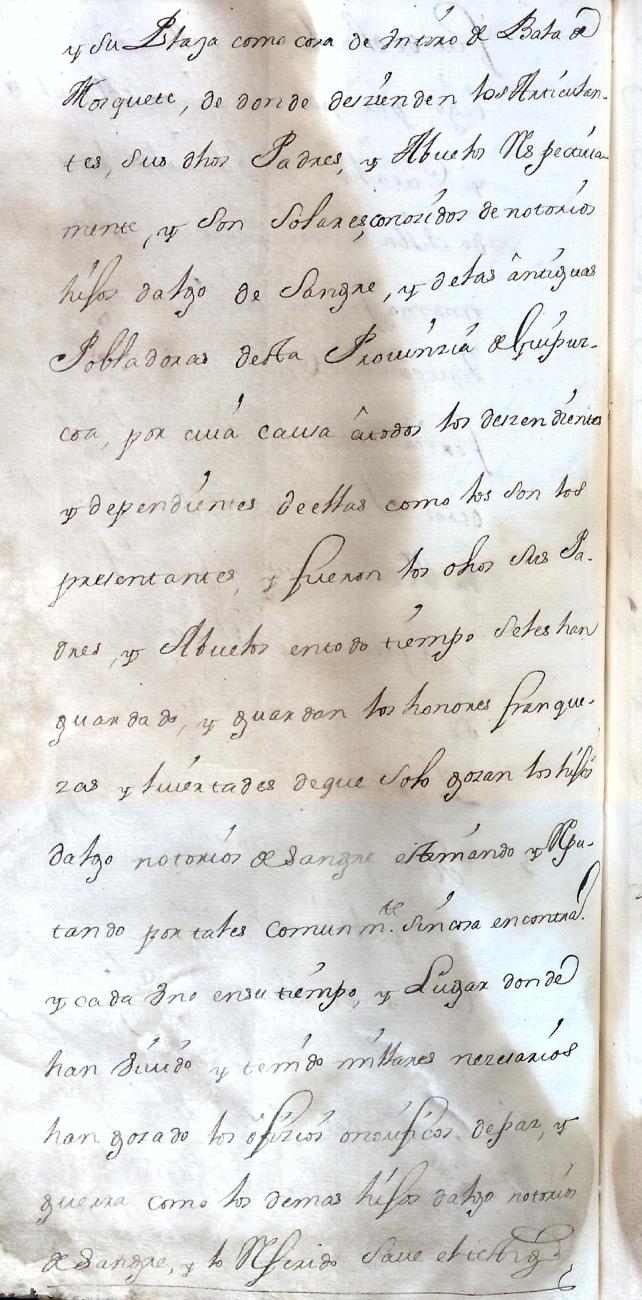 y su Plaza como cosa de dntiro de Bala de
Mosquete, de donde deszienden los Articulan-
tes, sus dhos Padres, y Abuelos Respectiua-
mente, y son solares, conozidos de notorios
hijos dalgo de Sangre, y delas ântiguas
Pobladoras desta Prouinzia de Guipuz-
coa, por cuia causa âtodos los deszendientes
y dependientes deellas como los son los
presentantes, y fueron los dhos sus Pa-
dres, y Abuelos entodo tiempo seles han
guardado, y guardan los honores franque-
zas y liuertades deque solo gozan los hijos
dalgo notorios de Sangre estimando y Repu-
tando por tales Comunmte. sin cosa encontra.
y cada Vno ensu tiempo, y Lugar donde
han Viuido y tenido millares nezesarios
han gozado los ofizios onorificos depaz, y
guerra como los demas hijos dalgo notorios
de Sangre, y lo Referido saue el testigo